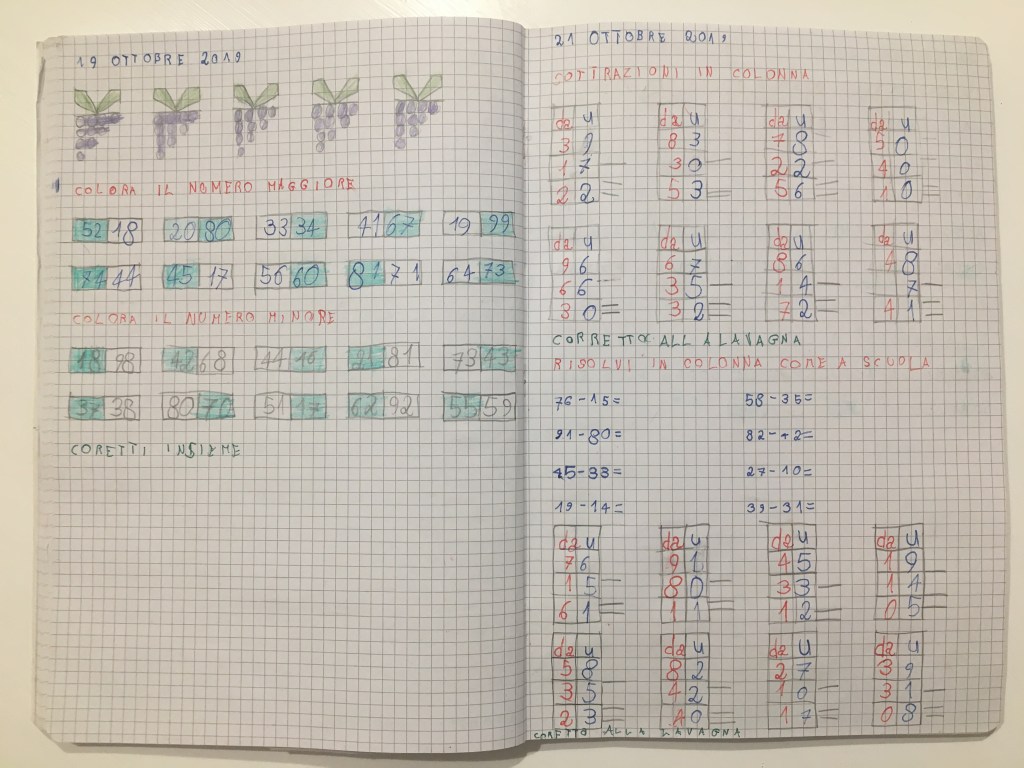 19 OTTOBRE 2019
COLORA IL NUMERO MAGGIORE
52 18 20 80 33 34 41 67 19 99
74 44 45 17 56 60 81 71 64 73
COLORA IL NUMERO MINORE
18 98 42 68 44 16 21 81 73 43
37 38 80 70 51 17 62 92 55 59
CORETTI INSIEME
21 OTTOBRE 2019
SOTTRAZIONI IN COLONNA
da u da u da u da u
3 9 8 3 7 8 5 0
1 7 – 3 0 – 2 2 – 4 0 –
2 2 = 5 3 = 5 6 = 1 0 =
da u da u da u da u
9 6 6 7 8 6 4 8
6 6 – 3 5 – 1 4 – 7 –
3 0 = 3 2 = 7 2 = 4 1 =
CORRETTO ALLA LAVAGNA
RISOLVI IN COLONNA COME A SCUOLA
76-15= 58-35=
91-80= 82-42=
45-33= 27-10=
19-14= 39-31=
da u da u da u da u
7 6 9 1 4 5 1 9
1 5 – 8 0 – 3 3 – 1 4 –
6 1 = 1 1 = 1 2 = 0 5 =
da u da u da u da u
5 8 8 2 2 7 3 9
3 5 – 4 2 – 1 0 – 3 1 –
2 3 = 4 0 = 1 7 = 0 8 =
CORETTO ALLA LAVAGNA